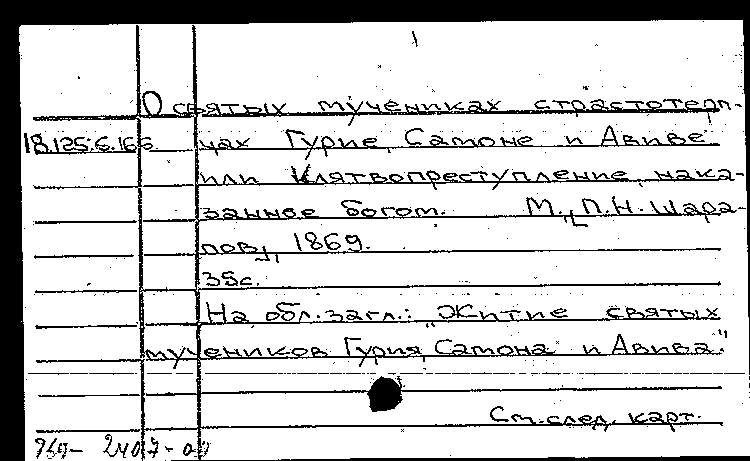 О святых мучениках страстотерп-
18.125.6.166 цах Гурие, Самоне и Авиве
или Клятвопреступление, нака-
занное богом. М., [П.Н. Шара-
пов], 1869.
35с.
На обл. загл.: "Житие святых
мучеников Гурия, Самона и Авива"
См. след. карт.